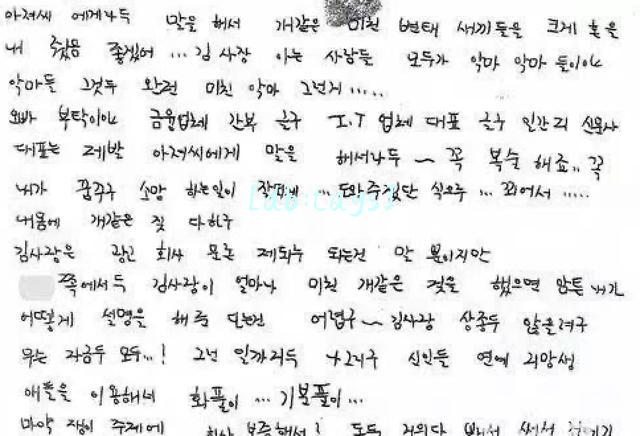 아저씨 에게나두 말을 해서 개같은 미친 변태 새끼들을 크게 혼을
내 줬음 좋겠어 ... 김사장 아는 사람들 모두가 악마 악마 들이야
악마들 그것두 완전 미친 악마 그런게 .....
오빠 부탁이야 금융업체 간부 글구 I.T 업체 대표 글구 일간지 신문사
대표는 제발 아저씨에게 말을 해서나두 ~ 꼭 복수 해죠.. 꼭
내가 꿈꾸구 소망 하는일이 잘되게 ... 도와주겠단 식으로 ... 꾀어서 .....
내몸에 개같은 짓 다하구
김사장은 광고 회사 모론 제되누 되는건 말 뿐이지만
쪽에서두 김사장이 얼마나 미친 개같은 짓을 했으면 암튼 내가
어떻게 설명을 해 준다는건 어렵구 ~ 김사장 상종두 않을려구
무슨 자금두 모두...! 그런 일까지두 나그네구 신인들 연예 지망생
애들을 이용해네 화풀이 ... 기분풀이 ...
마약 쟁이 주제에
lab:tags1